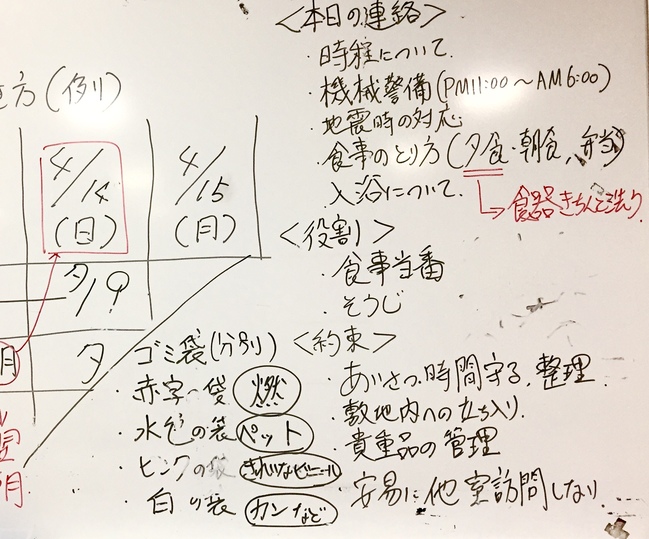 方(例)
4/14
(日)
4/15
(月)
夕/
夕
月
翌
朝
<本日の連絡>
・時程について.
・機械警備(PM11:00~AM6:00)
・地震時の対応
・食事のとり方(夕食・朝食、弁当)
食器きちんと洗う.
・入浴について.
<役割>
・食事当番
・そうじ
<約束>
・あいさつ、時間守る、整理.
・敷地内への立ち入り.
・貴重品の管理
・安易に他室訪問しない.
ゴミ袋(分別)
・赤字の袋 燃
・水色の袋 ペット
・ピンクの袋 きれいなビニール
・白の袋 カンなど